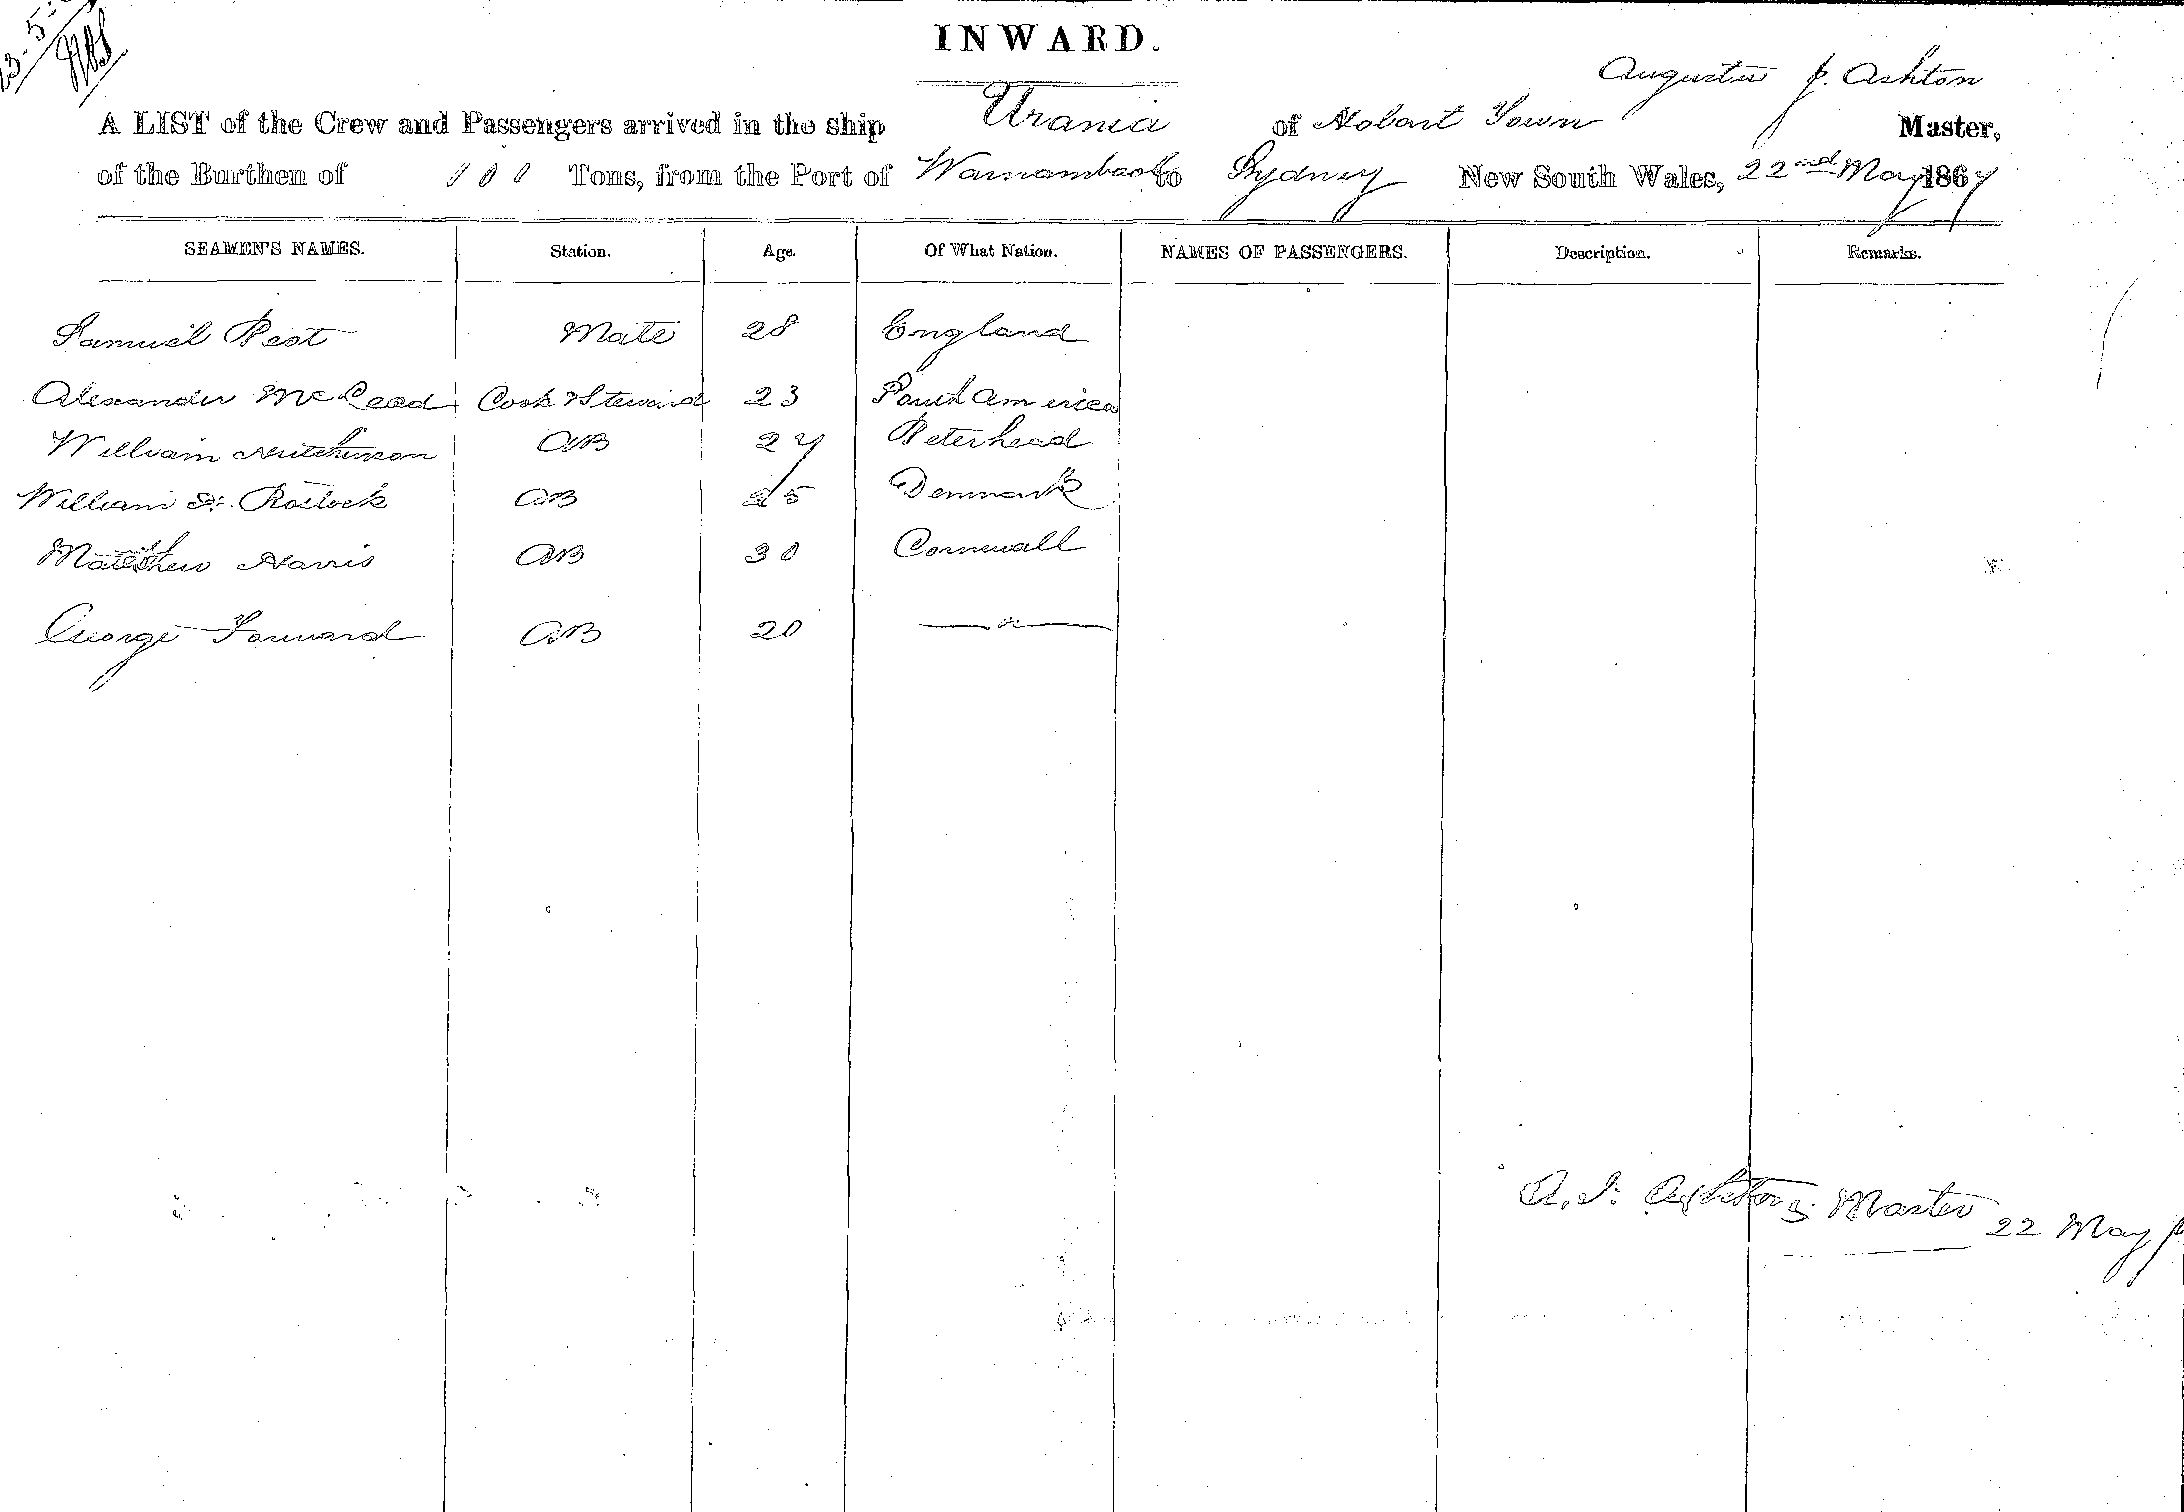 INWARD.
Augustus J. Ashton
A LIST of the Crew and Passengers arrived in the ship Urania of Hobart Town Master,
of the Burthen of 100 Tons, from the Port of Warnambool to Sydney New South Wales, 22nd May 1867
SEAMEN'S NAMES. Station. Age. Of What Nation. NAMES OF PASSENGERS. Description. Remarks.
Samuel Best Mate 28 England
Alexander McLeod Cook & Steward 23 South America
William Hutchinson AB 27 Peterhead
William H. Rostock AB 25 Denmark
Matthew Harris AB 30 Cornwall
George Forward AB 20 "
A. J. Ashton Master 22 May